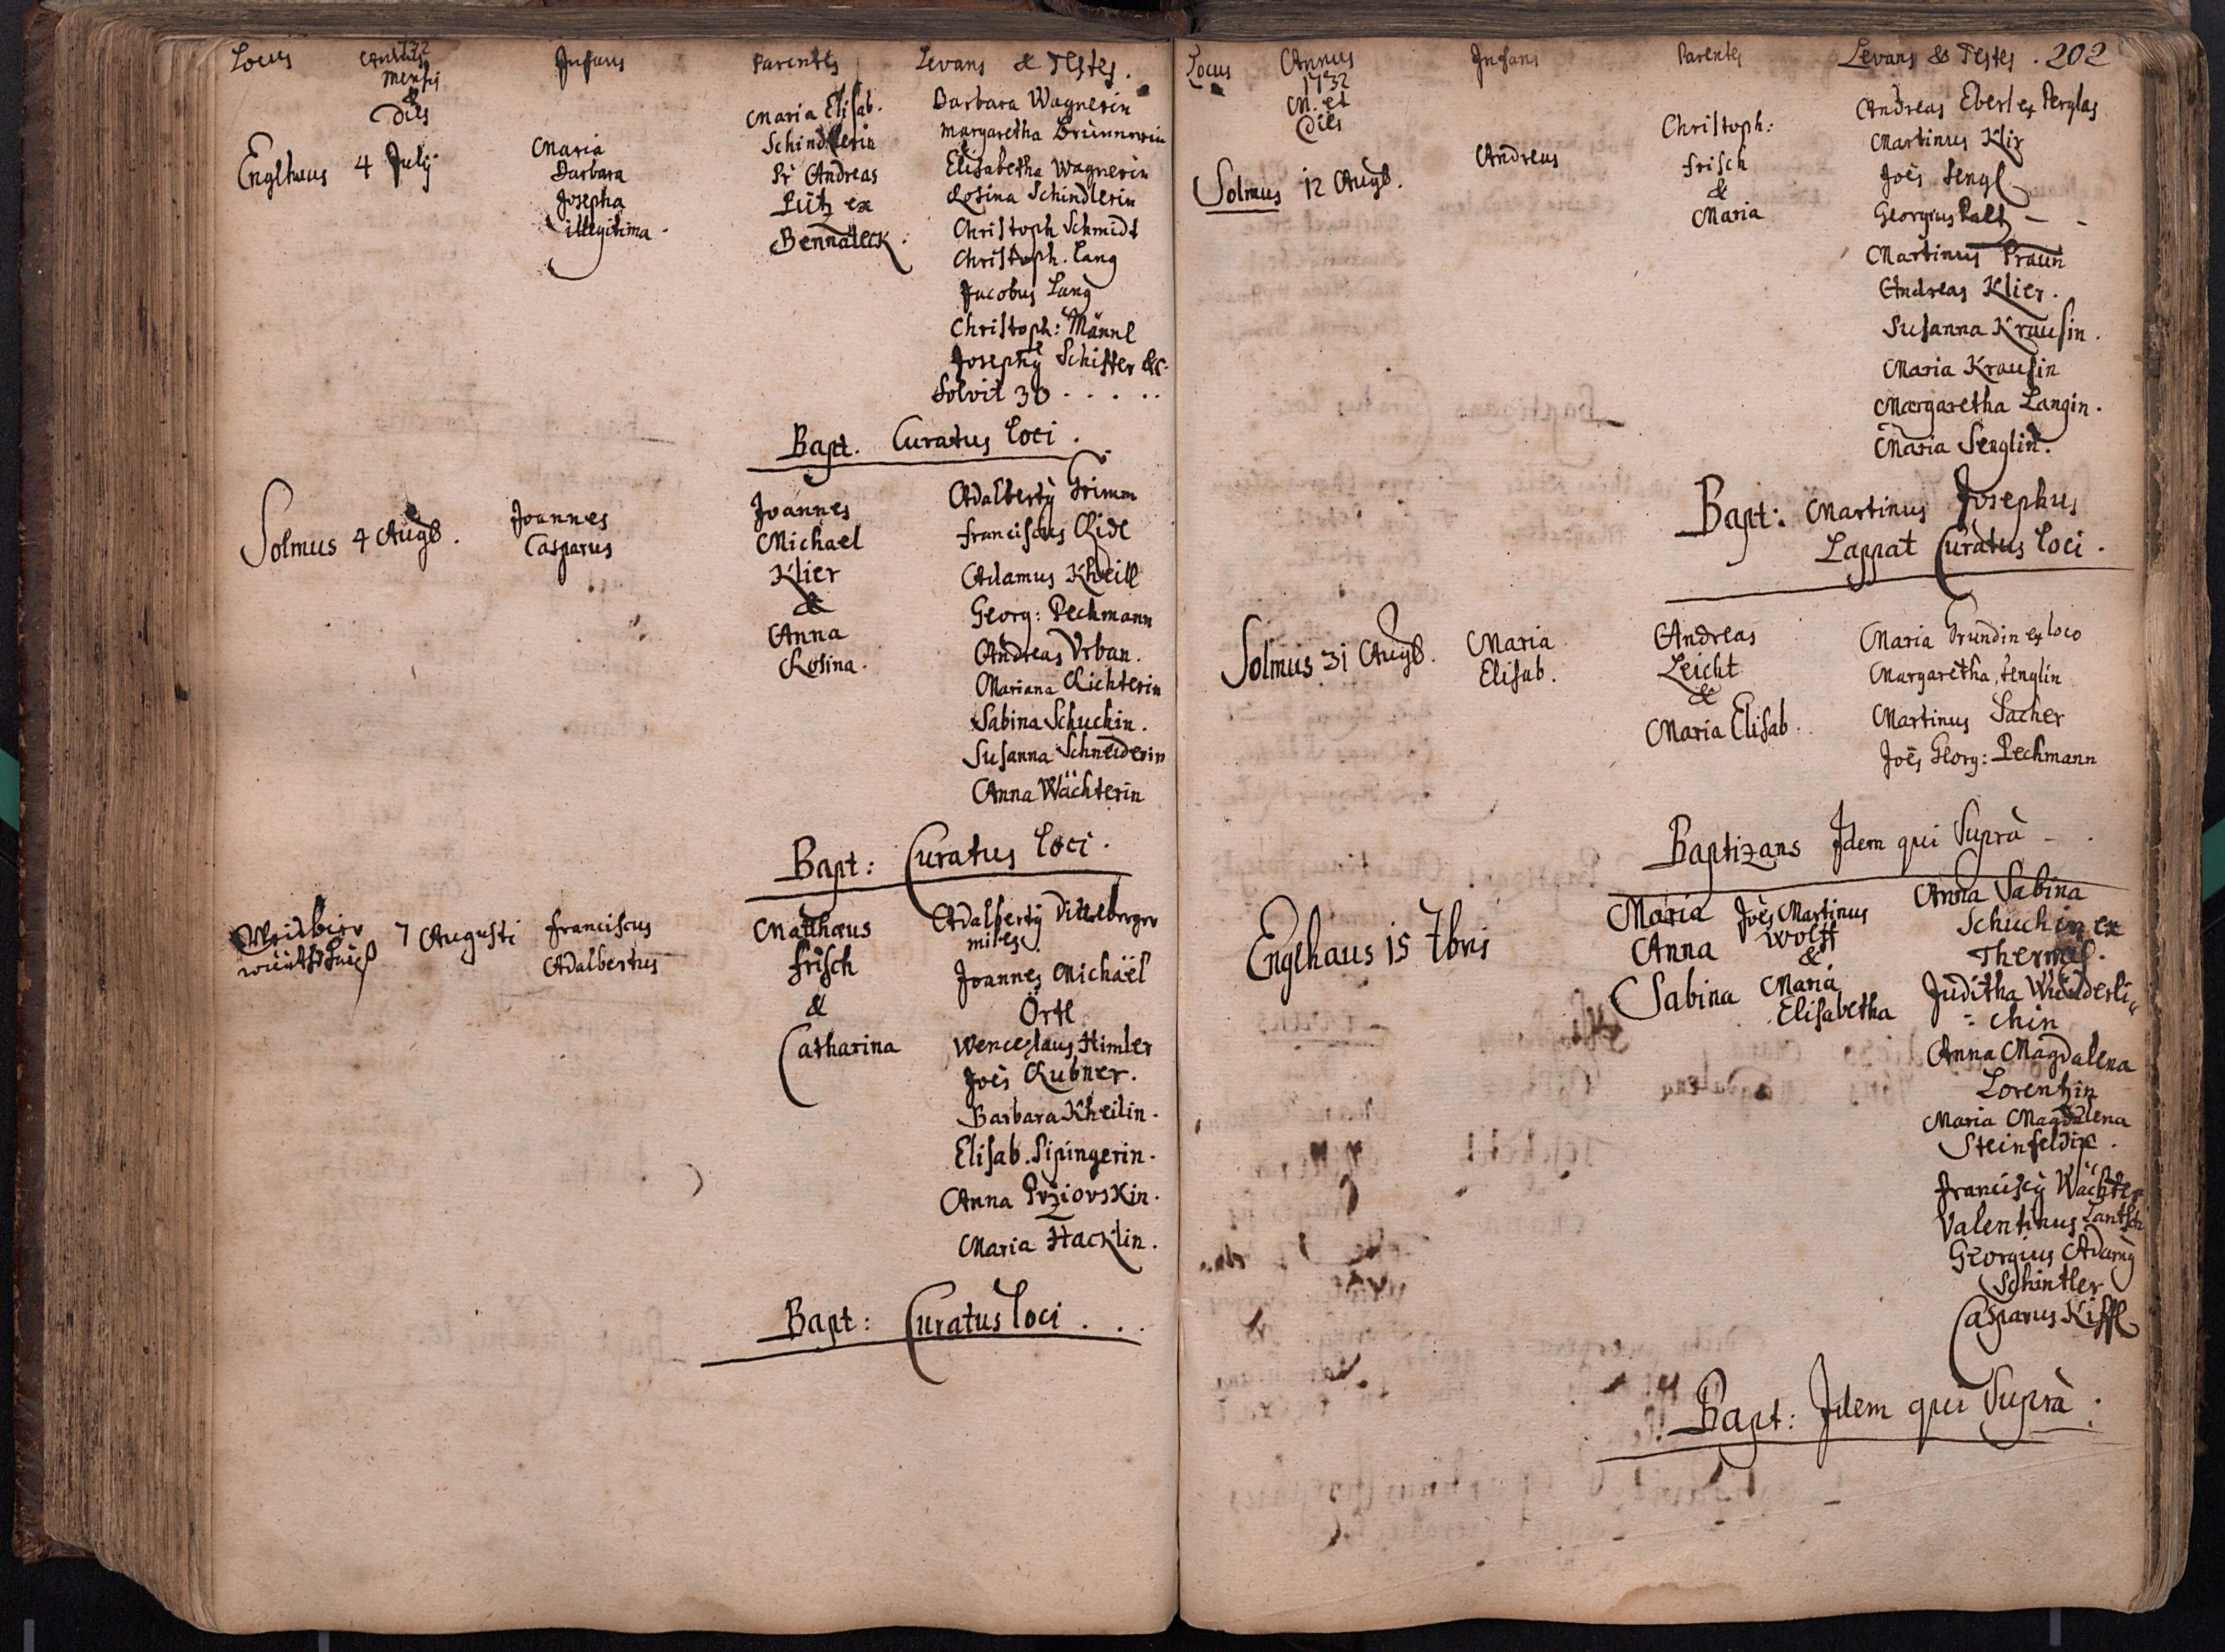 Locus Annus 1732 Infans Parentes Levans & Testes.
Mensis
&
Dies
Englhaus 4 Julij
Maria
Barbara
Josepha
illegitima.
Maria Elisab.
Schindlerin
Pr Andreas
Lutz ex
Bennateck.
Barbara Wagnerin
Margaretha Brünnerin
Elisabetha Wagnerin
Rosina Schindlerin
Christoph Schmidt
Christoph. Lang
Jacobus Lang
Christoph: Männl
Josephy Schiffer &c.
Solvit 30 . . . . .
Bapt. Curatus loci.
Solmus 4 AugB.
Joannes
Casparus
Joannes
Michael
Klier
&
Anna
Rosina.
Adalberty Grimm
Franciscus Ridl
Adamus Kheill
Georg: Pechmann
Andreas Urban.
Mariana Richterin
Sabina Schuchin.
Susanna Schneiderin
Anna Wächterin
Bapt: Curatus loci.
7 Augusti
Franciscus
Adalbertus
Matthæus
Frisch
&
Catharina
Adalberty Dittelberger
miles.
Joannes Michäel
Örtl
Wenceslaus Himler
Joës Rubner.
Barbara Kheilin.
Elisab. Sipingerin.
Anna Prziovskin.
Maria Hacklin.
Bapt: Curatus loci . . .
Locus Annus Infans Parentes Levans & Testes . 202
1732
M. et
Dies
Solmus 12 AugB.
Andreas
Christoph:
Frisch
&
Maria
Andreas Eberl ex Perglas
Martinus Klir
Joës Sengl
Georgius Palt – -
Martinus Praun
Andreas Klier.
Susanna Krausin.
Maria Krausin
Margaretha Langin.
Maria Senglin.
Bapt: Martinus Josephus
Lappat Curatus loci.
Solmus 31 AugB.
Maria
Elisab.
Andreas
Leicht
&
Maria Elisab.
Maria Grundin ex loco
Margaretha Senglin
Martinus Sacher
Joës Georg: Pechmann
Baptizans Idem qui Suprà - .
Englhaus 15 7bris
Maria
Anna
Sabina
Joës Martinus
Wolff
&
Maria
Elisabetha
Anna Sabina
Schuchin ex
Thermis.
Juditha Wunderli=
=chin
Anna Magdalena
Lorentzin
Maria Magdalena
Steinfeldin.
Franciscy Wächter
Valentinus Lantsch
Georgius Adamy
Schintler
Casparus Kiffl
Bapt: Idem qui Suprà.